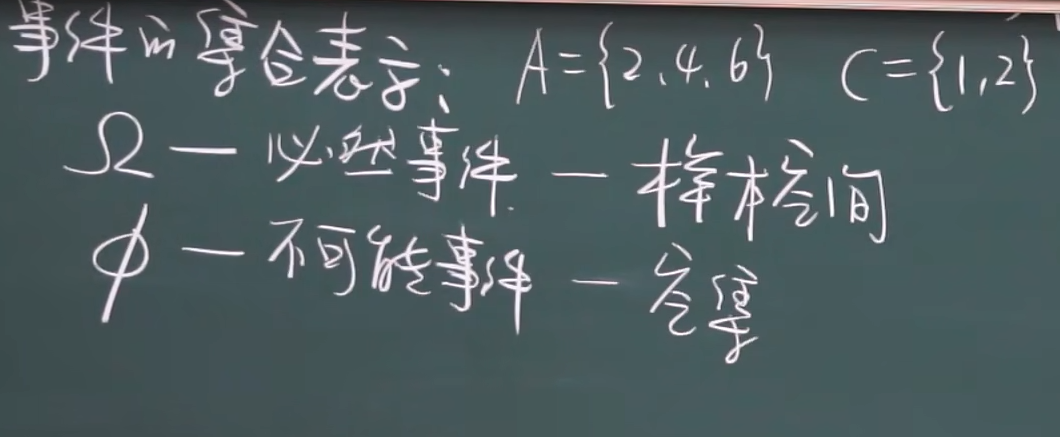 事件的集合表示: A={2.4.6} C={1,2}
Ω — 必然事件 — 样本空间
φ — 不可能事件 — 空集